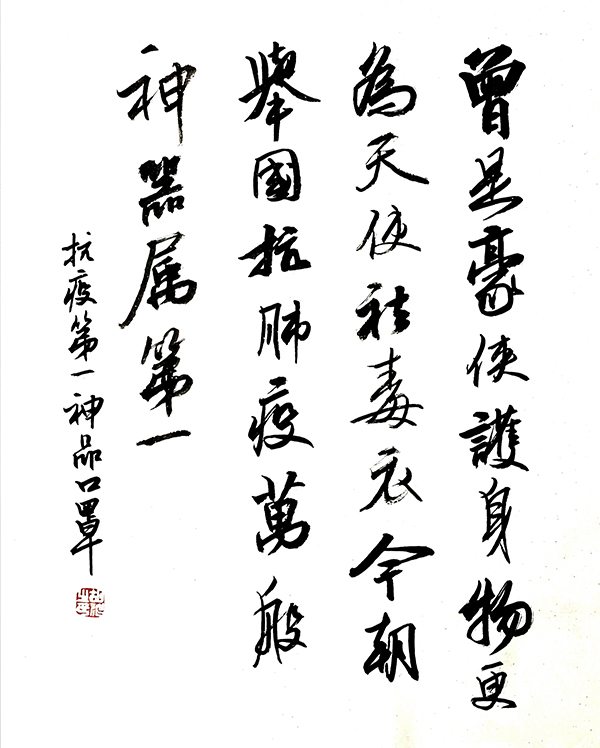 曾是豪侠護身物更
為天使祛毒衣今朝
舉國抗肺疫萬般
神器属第一
抗疫第一神品口罩